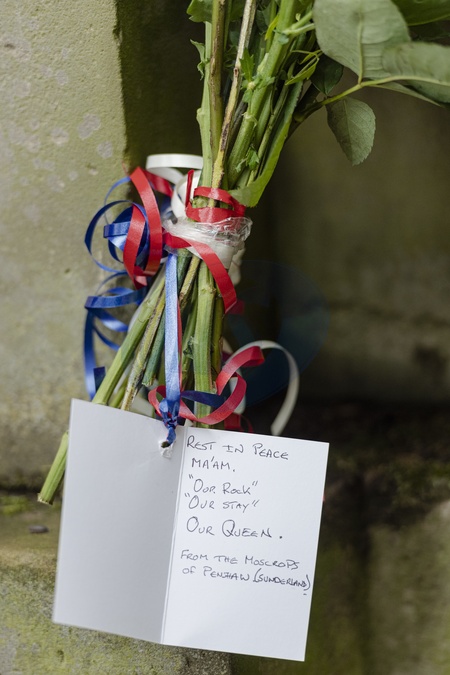 REST IN PEACE
MA'AM.
"OUR ROCK"
"OUR STAY"
OUR QUEEN.
FROM THE MOSCROPS
OF PENSHAW (SUNDERLAND)